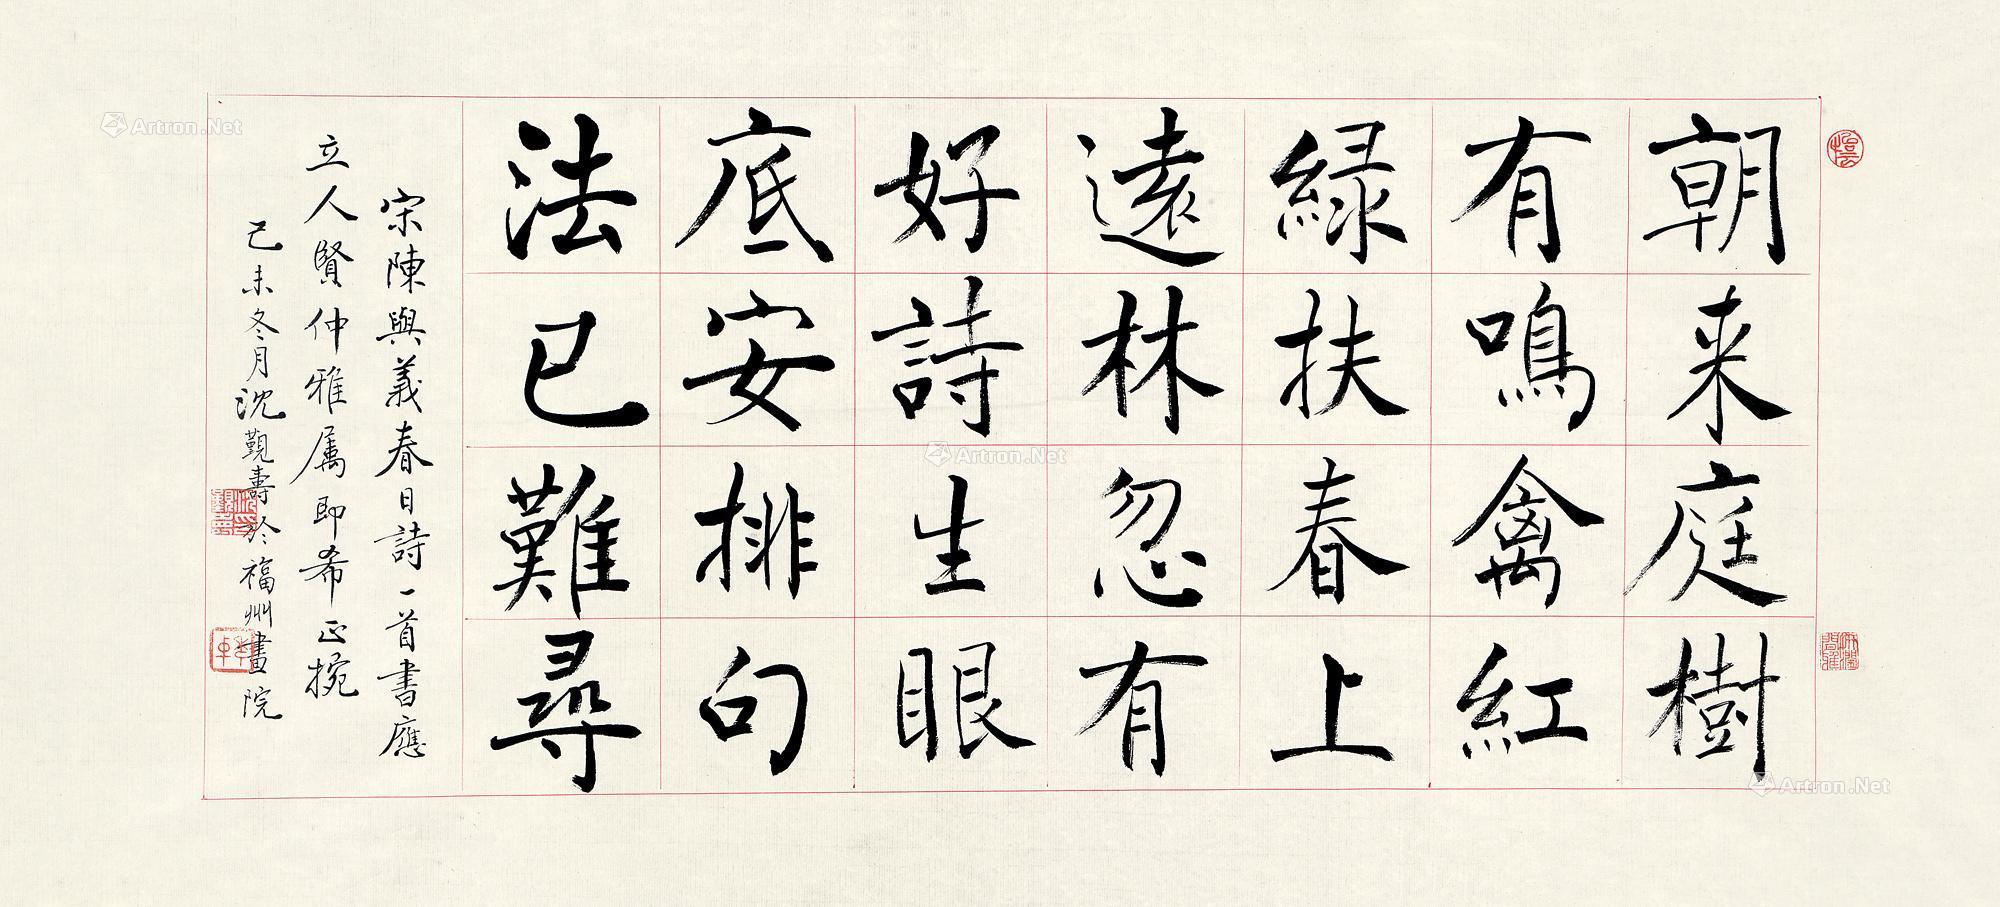 朝来庭樹
有鳴禽紅
緑扶春上
遠林忽有
好詩生眼
底安排句
法已難尋
宋陳與義春日詩一首書應
立人賢仲雅属即希正捥
己未冬月沈覲壽於福州畫院
Artron.Net
Artron.Net
Artron.Net